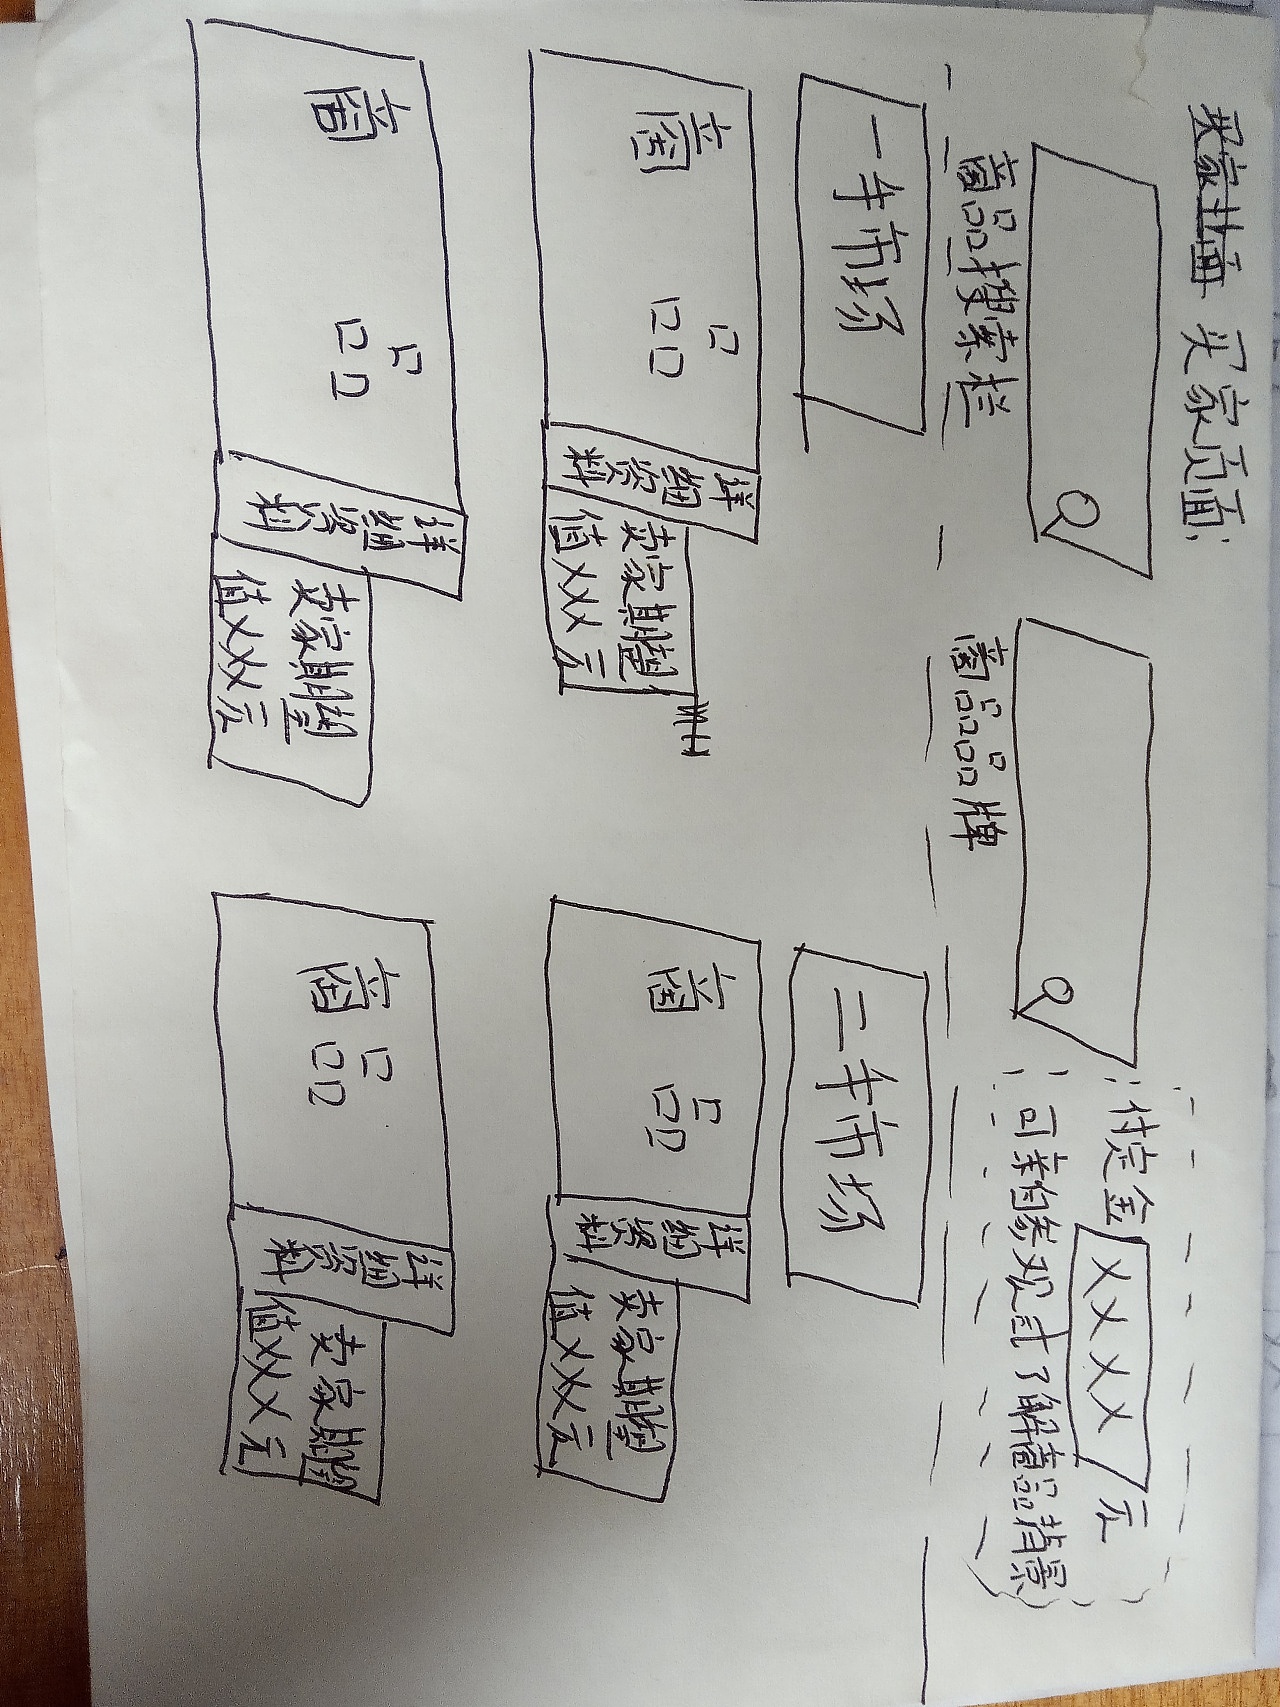 买家页面:
商品搜索栏
商品品牌
付定金 XXXX 元
可亲自参观或了解商品背景
一手市场
二手市场
商品
详细资料
卖家期望
值XXX元
商品
详细资料
卖家期望
值XXX元
商品
详细资料
卖家期望
值XXX元
商品
详细资料
卖家期望
值XXX元